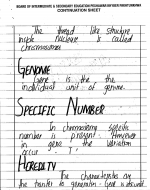 BOARD OF INTERMEDIATE & SECONDARY EDUCATION
CONTINUATION SHEET
The thread like structure
inside nucleus is called
chromosomes
GENOME
Gene is the the
individual unit of genome.
SPECIFIC NUMBER
In chromosomes specific
number is present. However
in gene the variation
occur.
HEREDITY
The characteristics by
the transfer to generation